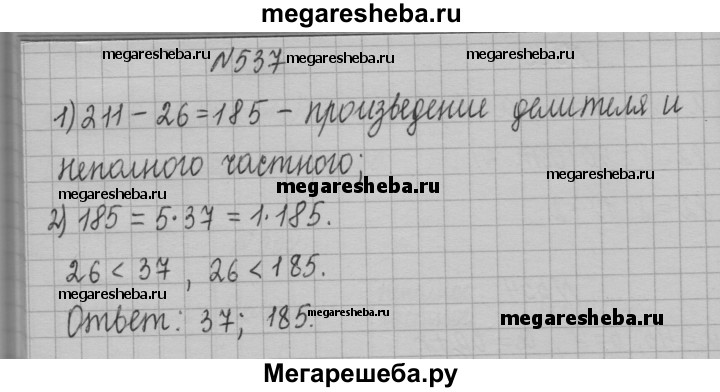 megaresheba.ru
megaresheba.ru №537 megaresheba.ru
1) 211 - 26 = 185 - произведение делителя и
неполного частного; megaresheba.ru
megaresheba.ru megaresheba.ru
2) 185 = 5·37 = 1·185. megaresheba.ru
26 < 37, 26 < 185.
megaresheba.ru megaresheba.ru
Ответ: 37; 185. megaresheba.ru
Мегарешеба.ру